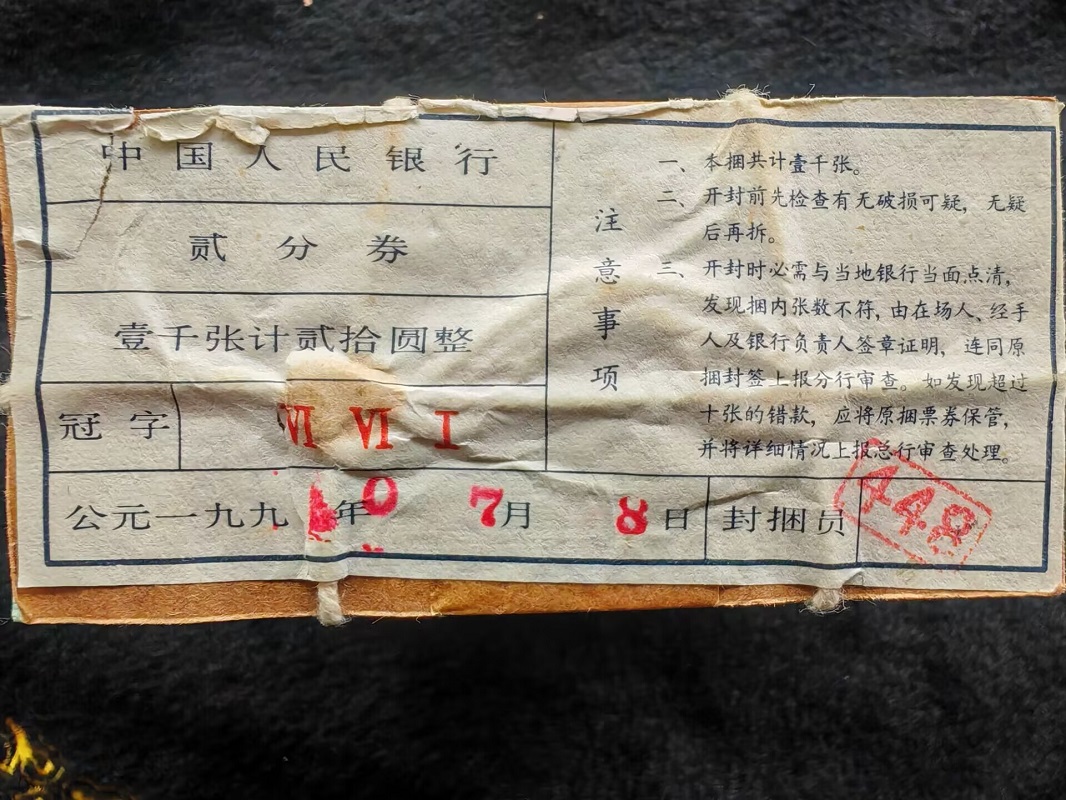 中国人民银行
贰分券
壹千张计贰拾圆整
冠字 VI VI I
公元一九九 年 0 7月 8日 封捆员 448
注意事项
一、本捆共计壹千张。
二、开封前先检查有无破损可疑，无疑
后再拆。
三、开封时必需与当地银行当面点清，
发现捆内张数不符，由在场人、经手
人及银行负责人签章证明，连同原
捆封签上报分行审查。如发现超过
十张的错款，应将原捆票券保管，
并将详细情况上报总行审查处理。